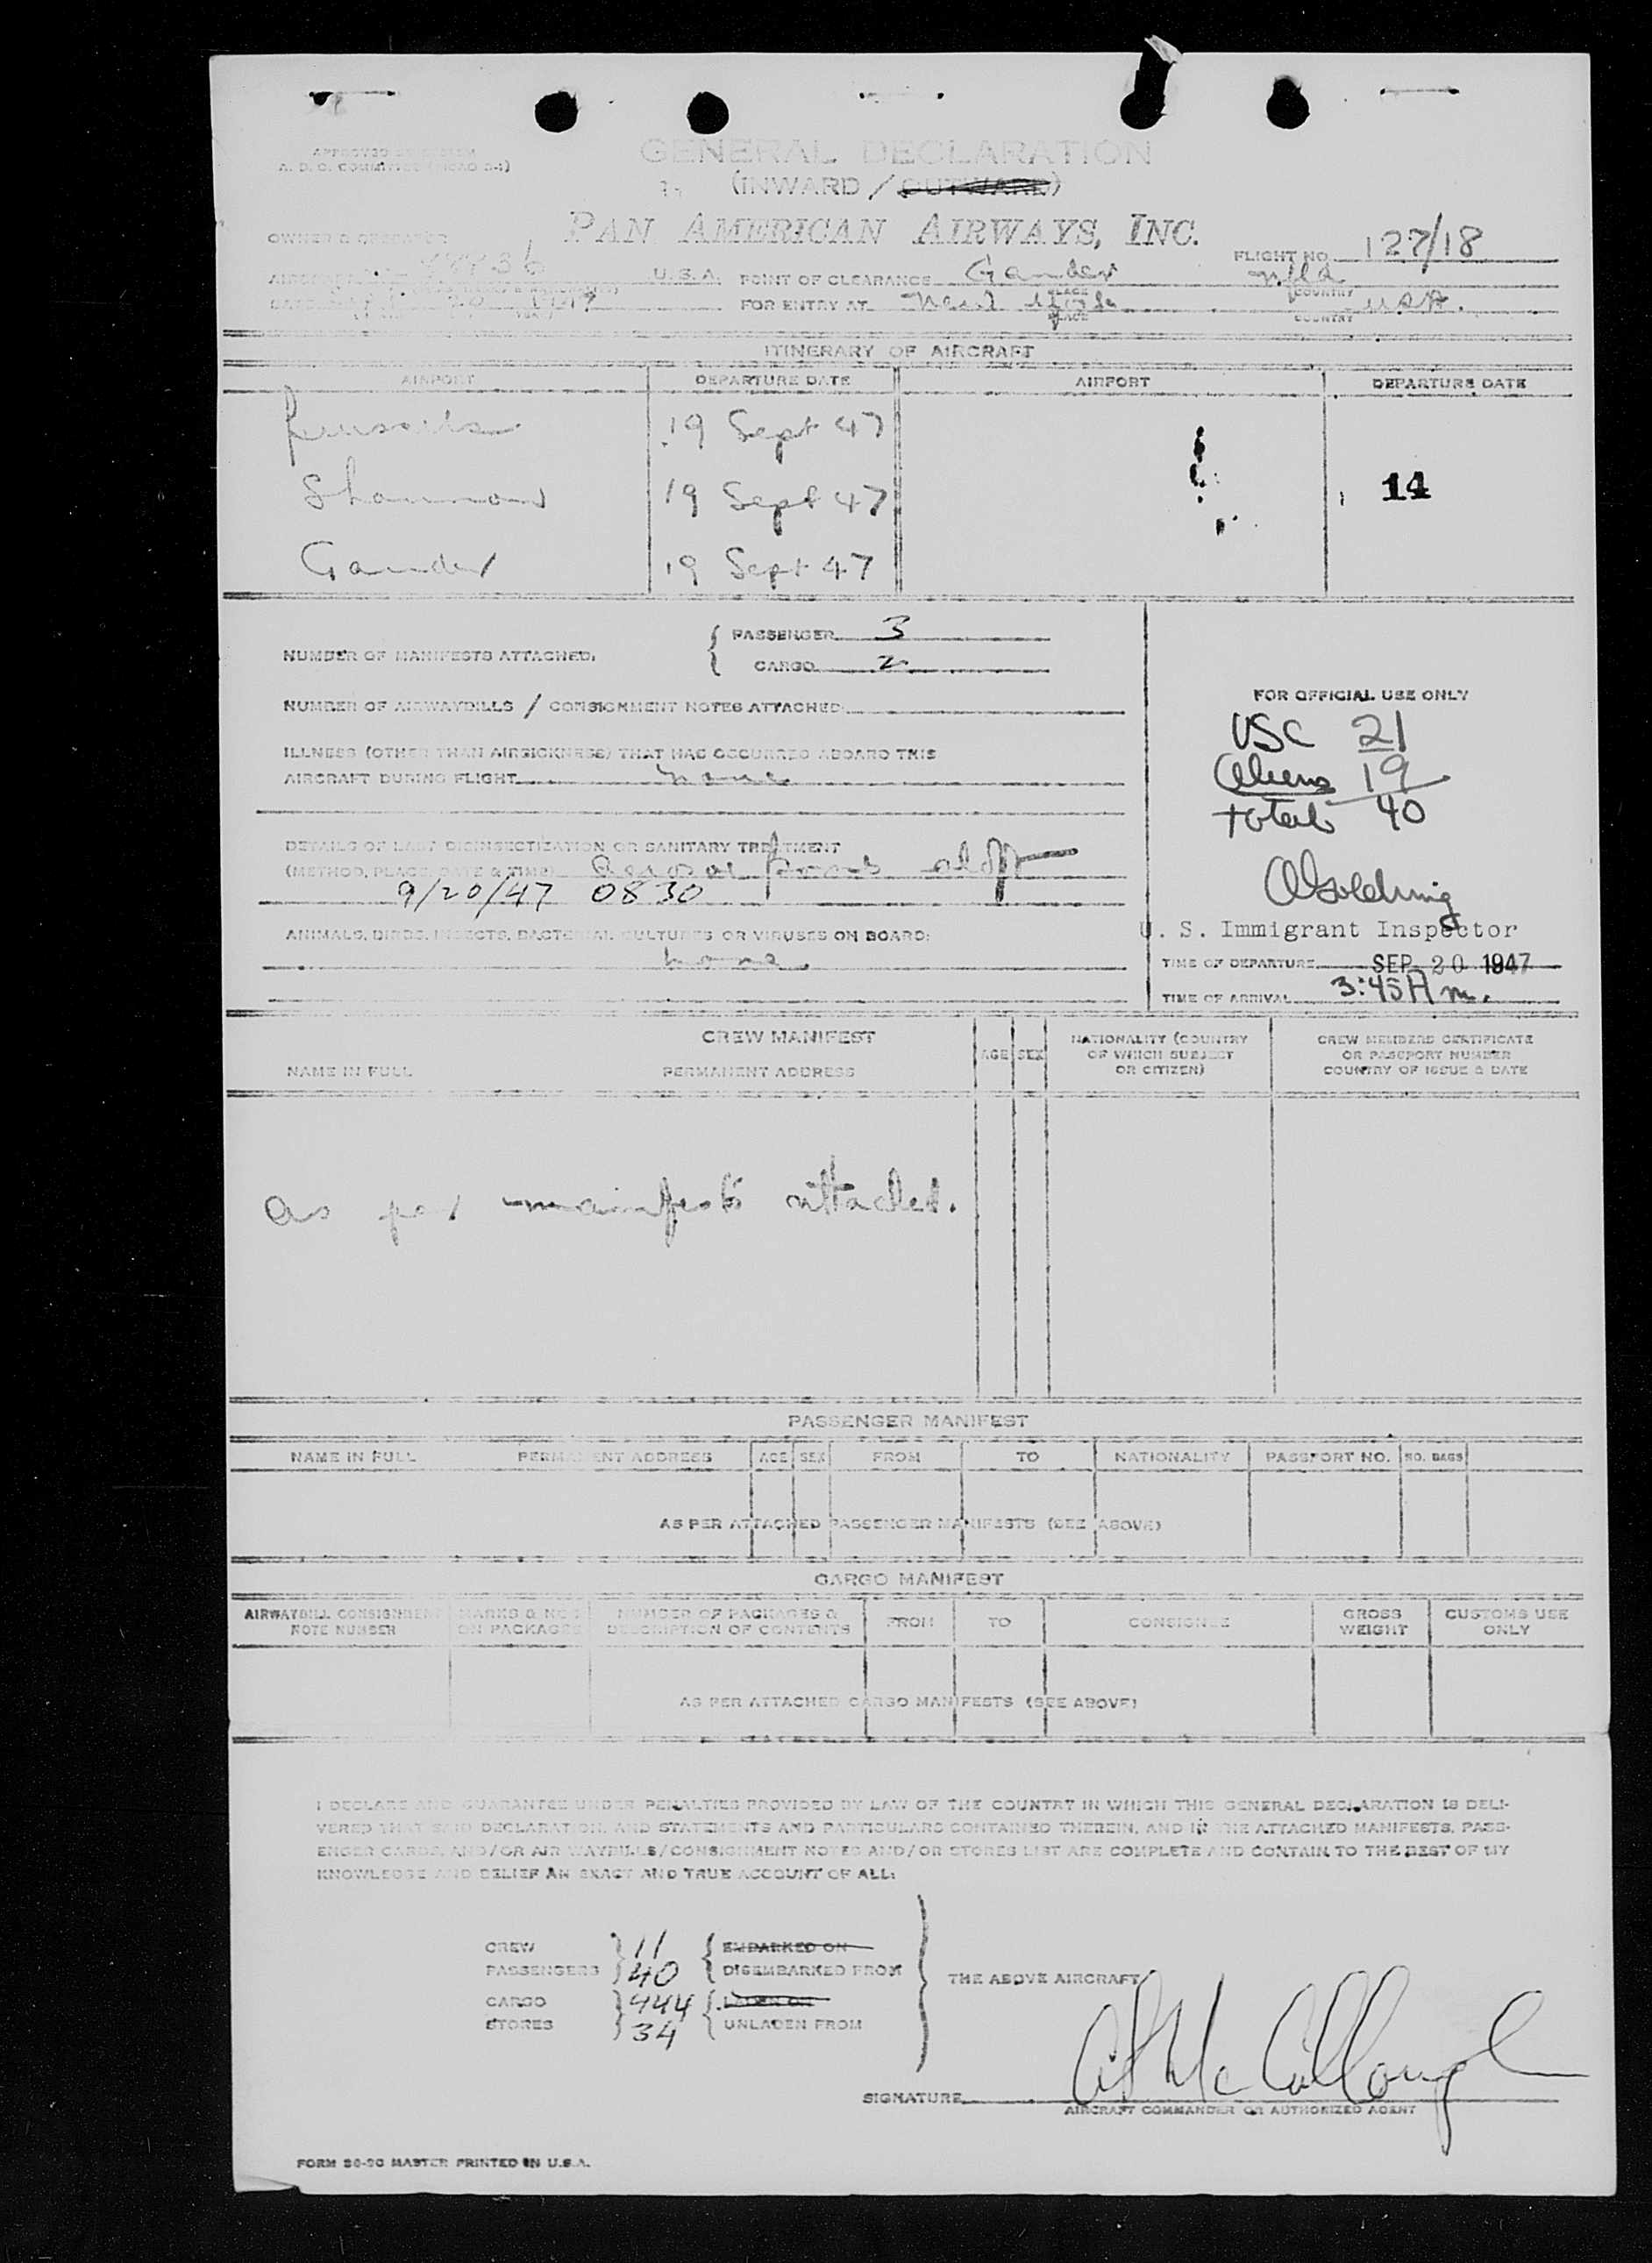 APPROVED
A. D. C. COMMITTEE (ICAO 9-4)
GENERAL DECLARATION
(INWARD / OUTWARD)
PAN AMERICAN AIRWAYS, INC.
OWNER & OPERATOR
FLIGHT NO. 127/18
U. S. A. POINT OF CLEARANCE Gander Nfld
PLACE COUNTRY
FOR ENTRY AT New York USA.
PLACE COUNTRY
ITINERARY OF AIRCRAFT
AIRPORT DEPARTURE DATE AIRPORT DEPARTURE DATE
Brussels 19 Sept 47
Shannon 19 Sept 47 14
Gander 19 Sept 47
NUMBER OF MANIFESTS ATTACHED: PASSENGER 3
CARGO 2
NUMBER OF AIRWAYBILLS / CONSIGNMENT NOTES ATTACHED:
FOR OFFICIAL USE ONLY
USC 21
Aliens 19
Total 40
ILLNESS (OTHER THAN AIRSICKNESS) THAT HAS OCCURRED ABOARD THIS
AIRCRAFT DURING FLIGHT none
DETAILS OF LAST DISINSECTIZATION OR SANITARY TREATMENT
(METHOD, PLACE, DATE & TIME) Aerosol Bomb aloft
9/20/47 0830
AGoldring
U. S. Immigrant Inspector
ANIMALS, BIRDS, INSECTS, BACTERIAL CULTURES OR VIRUSES ON BOARD:
none.
TIME OF DEPARTURE SEP 20 1947
TIME OF ARRIVAL 3:45 A m.
CREW MANIFEST
NAME IN FULL PERMANENT ADDRESS AGE SEX NATIONALITY (COUNTRY OF WHICH SUBJECT OR CITIZEN) CREW MEMBERS CERTIFICATE OR PASSPORT NUMBER COUNTRY OF ISSUE & DATE
as per manifests attached.
PASSENGER MANIFEST
NAME IN FULL PERMANENT ADDRESS AGE SEX FROM TO NATIONALITY PASSPORT NO. NO. BAGS
AS PER ATTACHED PASSENGER MANIFESTS (SEE ABOVE)
CARGO MANIFEST
AIRWAYBILL CONSIGNMENT NOTE NUMBER MARKS & NOS ON PACKAGES NUMBER OF PACKAGES & DESCRIPTION OF CONTENTS FROM TO CONSIGNEE GROSS WEIGHT CUSTOMS USE ONLY
AS PER ATTACHED CARGO MANIFESTS (SEE ABOVE)
I DECLARE AND GUARANTEE UNDER PENALTIES PROVIDED BY LAW OF THE COUNTRY IN WHICH THIS GENERAL DECLARATION IS DELI-
VERED THAT SAID DECLARATION, AND STATEMENTS AND PARTICULARS CONTAINED THEREIN, AND IN THE ATTACHED MANIFESTS, PASS-
ENGER CARDS, AND/OR AIR WAYBILLS/CONSIGNMENT NOTES AND/OR STORES LIST ARE COMPLETE AND CONTAIN TO THE BEST OF MY
KNOWLEDGE AND BELIEF AN EXACT AND TRUE ACCOUNT OF ALL:
CREW 11 EMBARKED ON
PASSENGERS 40 DISEMBARKED FROM THE ABOVE AIRCRAFT
CARGO 444 LADEN ON
STORES 34 UNLADEN FROM
SIGNATURE McCullough
AIRCRAFT COMMANDER OR AUTHORIZED AGENT
FORM 20-90 MASTER PRINTED IN U.S.A.